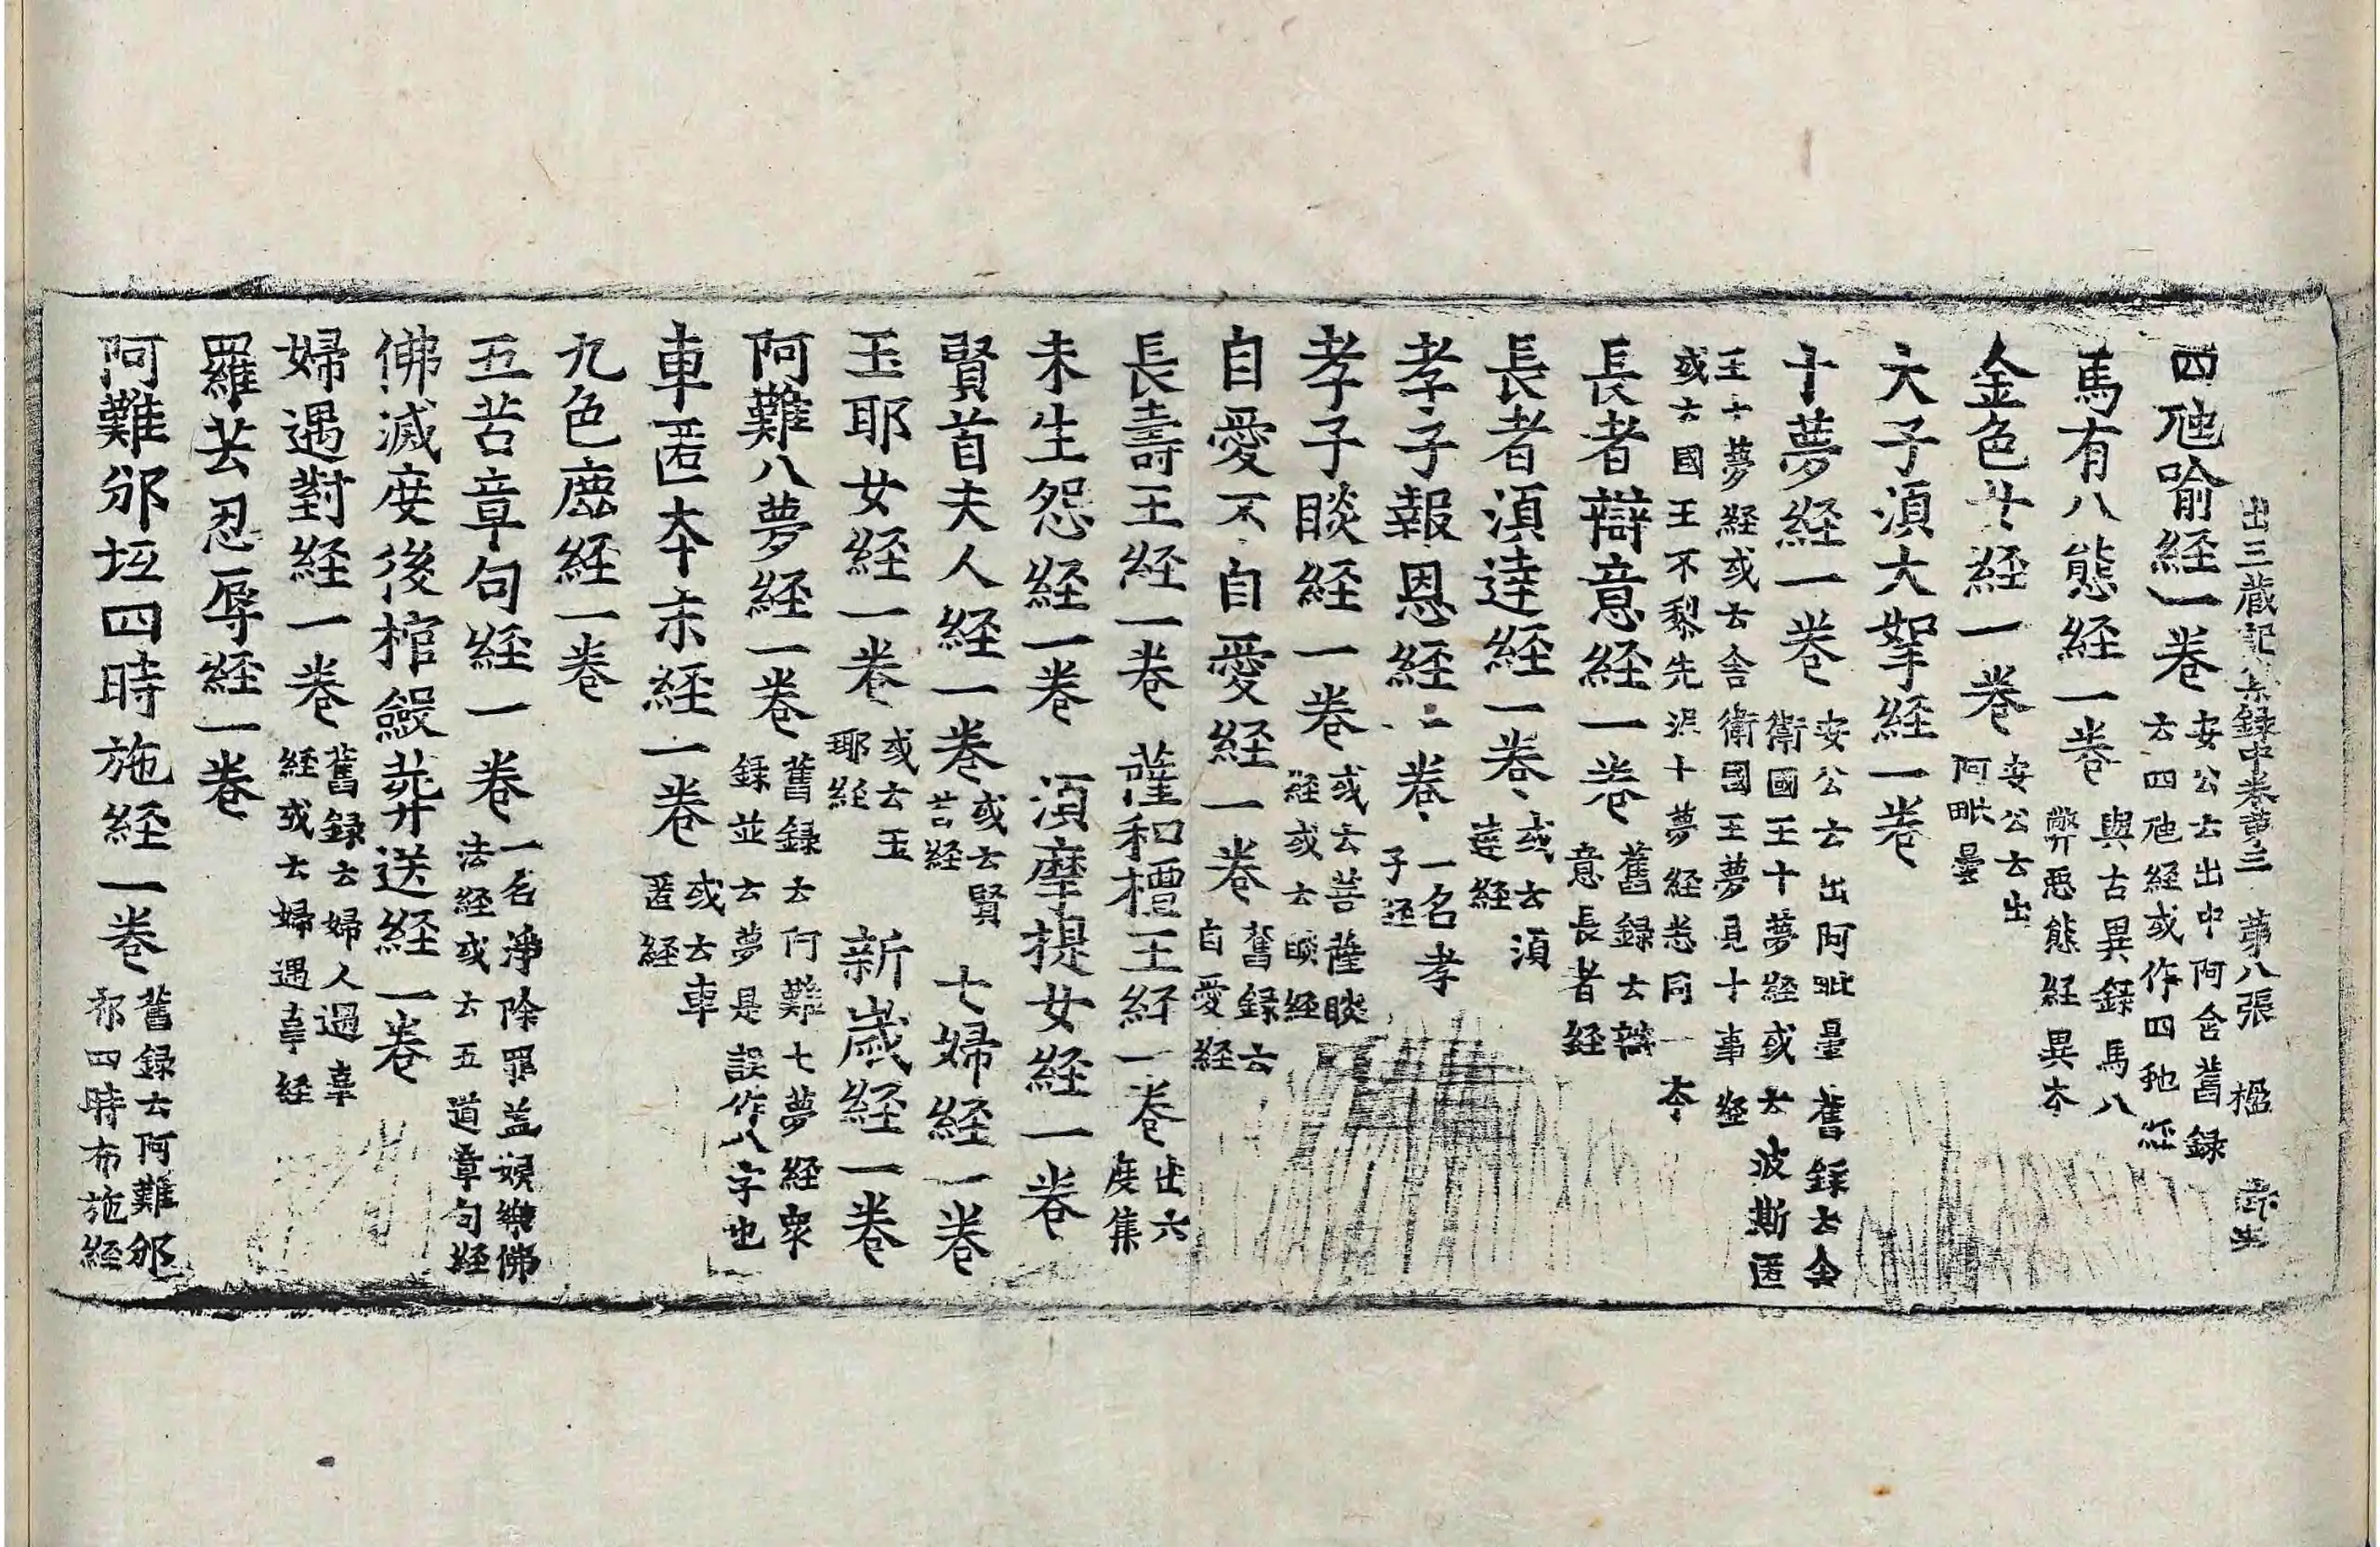 出三藏記 录録中卷第三 第八張 楹
四虵喻經一卷 安公云出中阿含舊録云四虵經或作四虵經
馬有八態經一卷 與古異録馬八弊惡態經異夲
金色女經一卷 安公云出阿毗曇
太子湏大拏經一卷
十夢經一卷 安公云出阿毗曇舊録云舍衛國王十夢經或云波斯匿
王十夢經或云舍衛國王夢見十事經或云國王不黎先泥十夢經悉同一夲
長者辯意經一卷 舊録云辯意長者經
長者湏達經一卷 或云湏達經
孝子報恩經一卷 一名孝子經
孝子睒經一卷 或云菩薩睒經或云睒經
自愛不自愛經一卷 舊録云自愛經
長壽王經一卷 薩和檀王經一卷 出六度集
未生怨經一卷 湏摩提女經一卷
賢首夫人經一卷 或云賢首經 七婦經一卷
玉耶女經一卷 或云玉耶經 新歲經一卷
阿難八夢經一卷 舊録云阿難七夢經衆録並云夢是誤作八字也
車匿夲末經一卷 或云車匿經
九色鹿經一卷
五苦章句經一卷 一名淨除罪盖娱樂佛法經或云五道章句經
佛滅度後棺斂葬送經一卷
婦遇對經一卷 舊録云婦人遇辜經或云婦遇辜經
羅芸忍辱經一卷
阿難邠坻四時施經一卷 舊録云阿難邠祁四時布施經